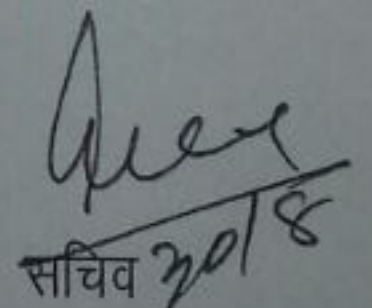 सचिव 30/8